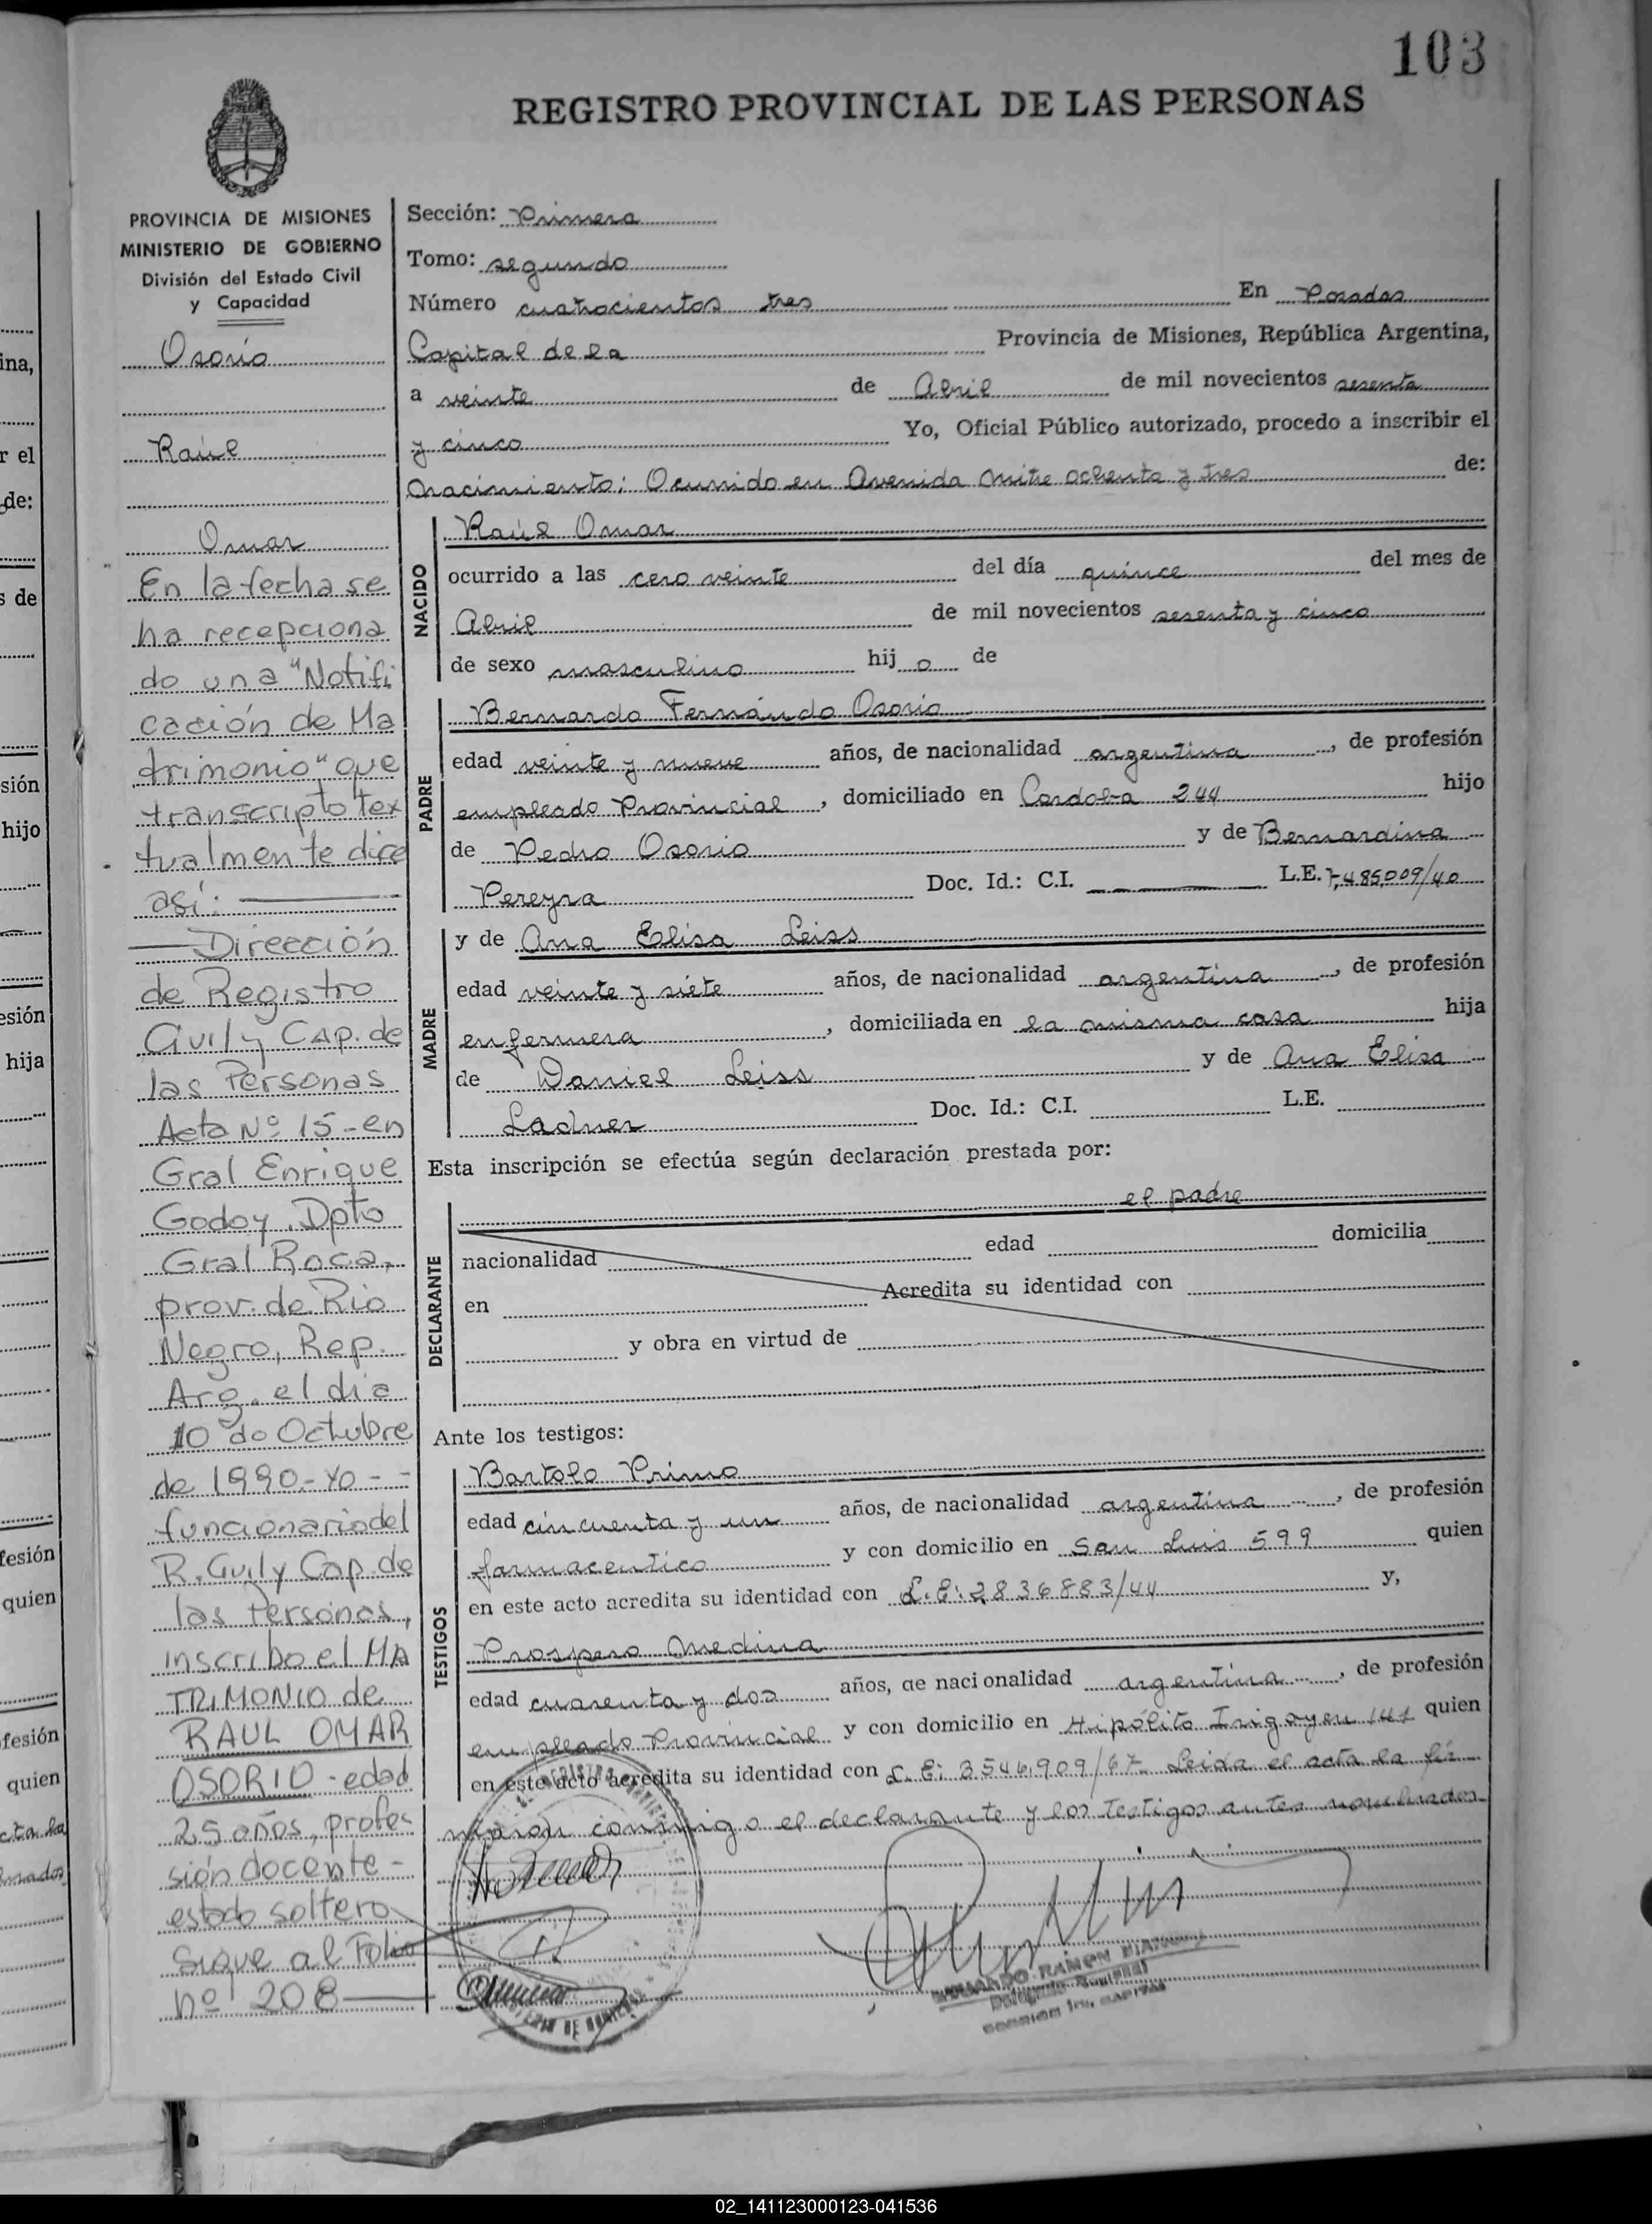 103
REGISTRO PROVINCIAL DE LAS PERSONAS
PROVINCIA DE MISIONES
MINISTERIO DE GOBIERNO
División del Estado Civil
y Capacidad
Osorio
Raúl
Omar
En la fecha se
ha recepciona
do una "Notifi
cación de Ma
trimonio" que
transcripto tex
tualmente dice
así:
Dirección
de Registro
Civil y Cap. de
las Personas
Acta Nº 15 - en
Gral Enrique
Godoy, Dpto
Gral Roca,
prov. de Rio
Negro, Rep.
Arg. el dia
10 de Octubre
de 1990.- yo - -
funcionario del
R. Civil y Cap. de
las Personas,
inscribo el MA
TRIMONIO de
RAUL OMAR
OSORIO - edad
25 años, profe
sión docente -
estado soltero
Sigue al Folio
nº 208
Sección: Primera
Tomo: segundo
Número cuatrocientos tres En Posadas
Capital de la Provincia de Misiones, República Argentina,
a veinte de Abril de mil novecientos sesenta
y cinco Yo, Oficial Público autorizado, procedo a inscribir el
nacimiento; Ocurrido en Avenida Mitre ochenta y tres de:
NACIDO
Raúl Omar
ocurrido a las cero veinte del día quince del mes de
Abril de mil novecientos sesenta y cinco
de sexo masculino hij o de
PADRE
Bernardo Fernándo Osorio
edad veinte y nueve años, de nacionalidad argentina, de profesión
empleado Provincial, domiciliado en Cordoba 244 hijo
de Pedro Osorio y de Bernardina
Pereyra Doc. Id.: C.I. L.E. 7,485,009/40
MADRE
y de Ana Elisa Leiss
edad veinte y siete años, de nacionalidad argentina, de profesión
enfermera, domiciliada en la misma casa hija
de Daniel Leiss y de Ana Elisa
Ladner Doc. Id.: C.I. L.E.
Esta inscripción se efectúa según declaración prestada por:
DECLARANTE
el padre
nacionalidad edad domicilia
en Acredita su identidad con
y obra en virtud de
Ante los testigos:
TESTIGOS
Bartolo Primo
edad cincuenta y un años, de nacionalidad argentina, de profesión
farmaceutico y con domicilio en San Luis 599 quien
en este acto acredita su identidad con L.E: 2836883/44 y,
Prospero Medina
edad cuarenta y dos años, de nacionalidad argentina, de profesión
empleado Provincial y con domicilio en Hipólito Irigoyen 141 quien
en este acto acredita su identidad con L.E: 3546,909/67 Leida el acta la fir
maron conmigo el declarante y los testigos antes nombrados
RAMON
ina,
r el
de:
s de
sión
hijo
esión
hija
fesión
quien
fesión
quien
cta la
02_141123000123-041536